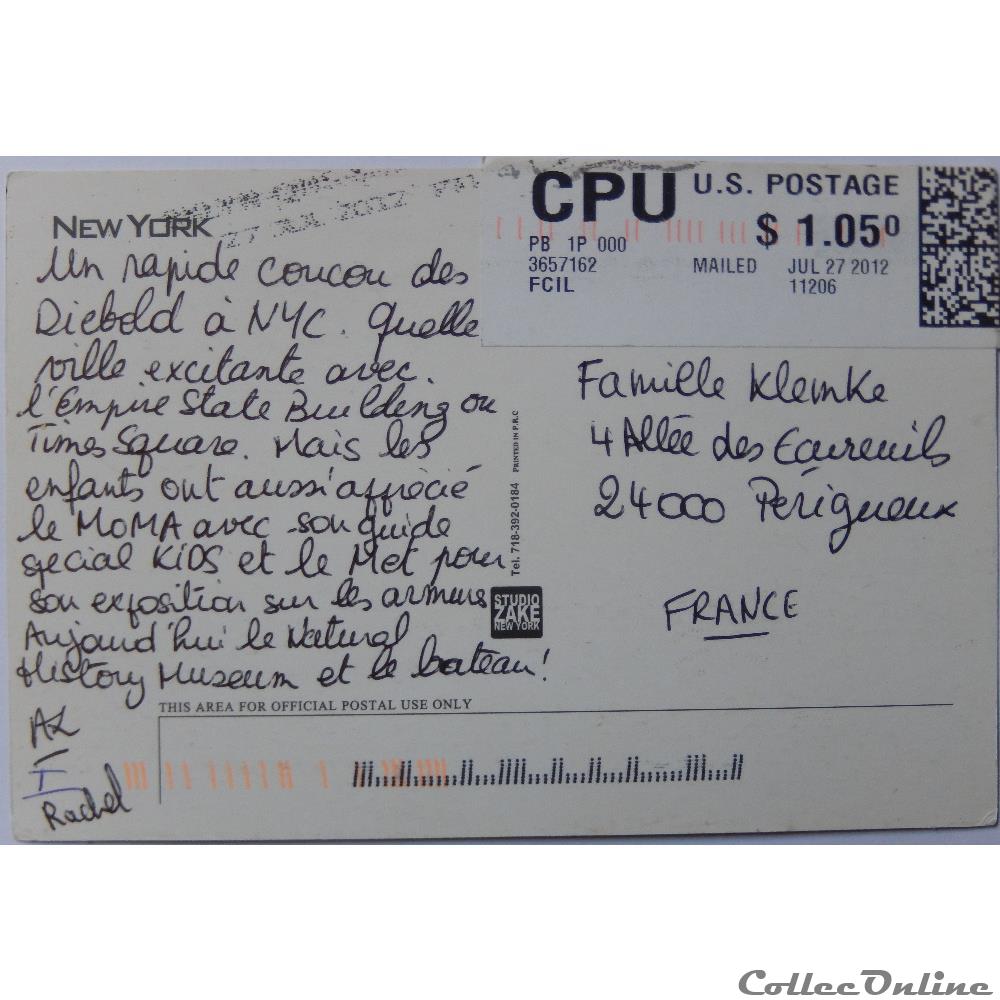 NEW YORK
27 JUL 2012 PM
CPU U.S. POSTAGE
$ 1.05⁰
PB 1P 000
3657162
FCIL
MAILED JUL 27 2012
11206
Un rapide coucou des
Diebold à NYC. Quelle
ville excitante avec.
l'Empire State Building ou
Times Square. Mais les
enfants ont aussi apprécié
le MoMA avec son guide
special KIDS et le Met pour
son exposition sur les armures
Aujourd'hui le Natural
History Museum et le bateau!
AL
I
Rachel
Tel. 718-392-0184 PRINTED IN P.R.C
STUDIO
ZAKE
NEW YORK
Famille Klemke
4 Allée des Ecureuils
24000 Périgueux
FRANCE
THIS AREA FOR OFFICIAL POSTAL USE ONLY
CollecOnline